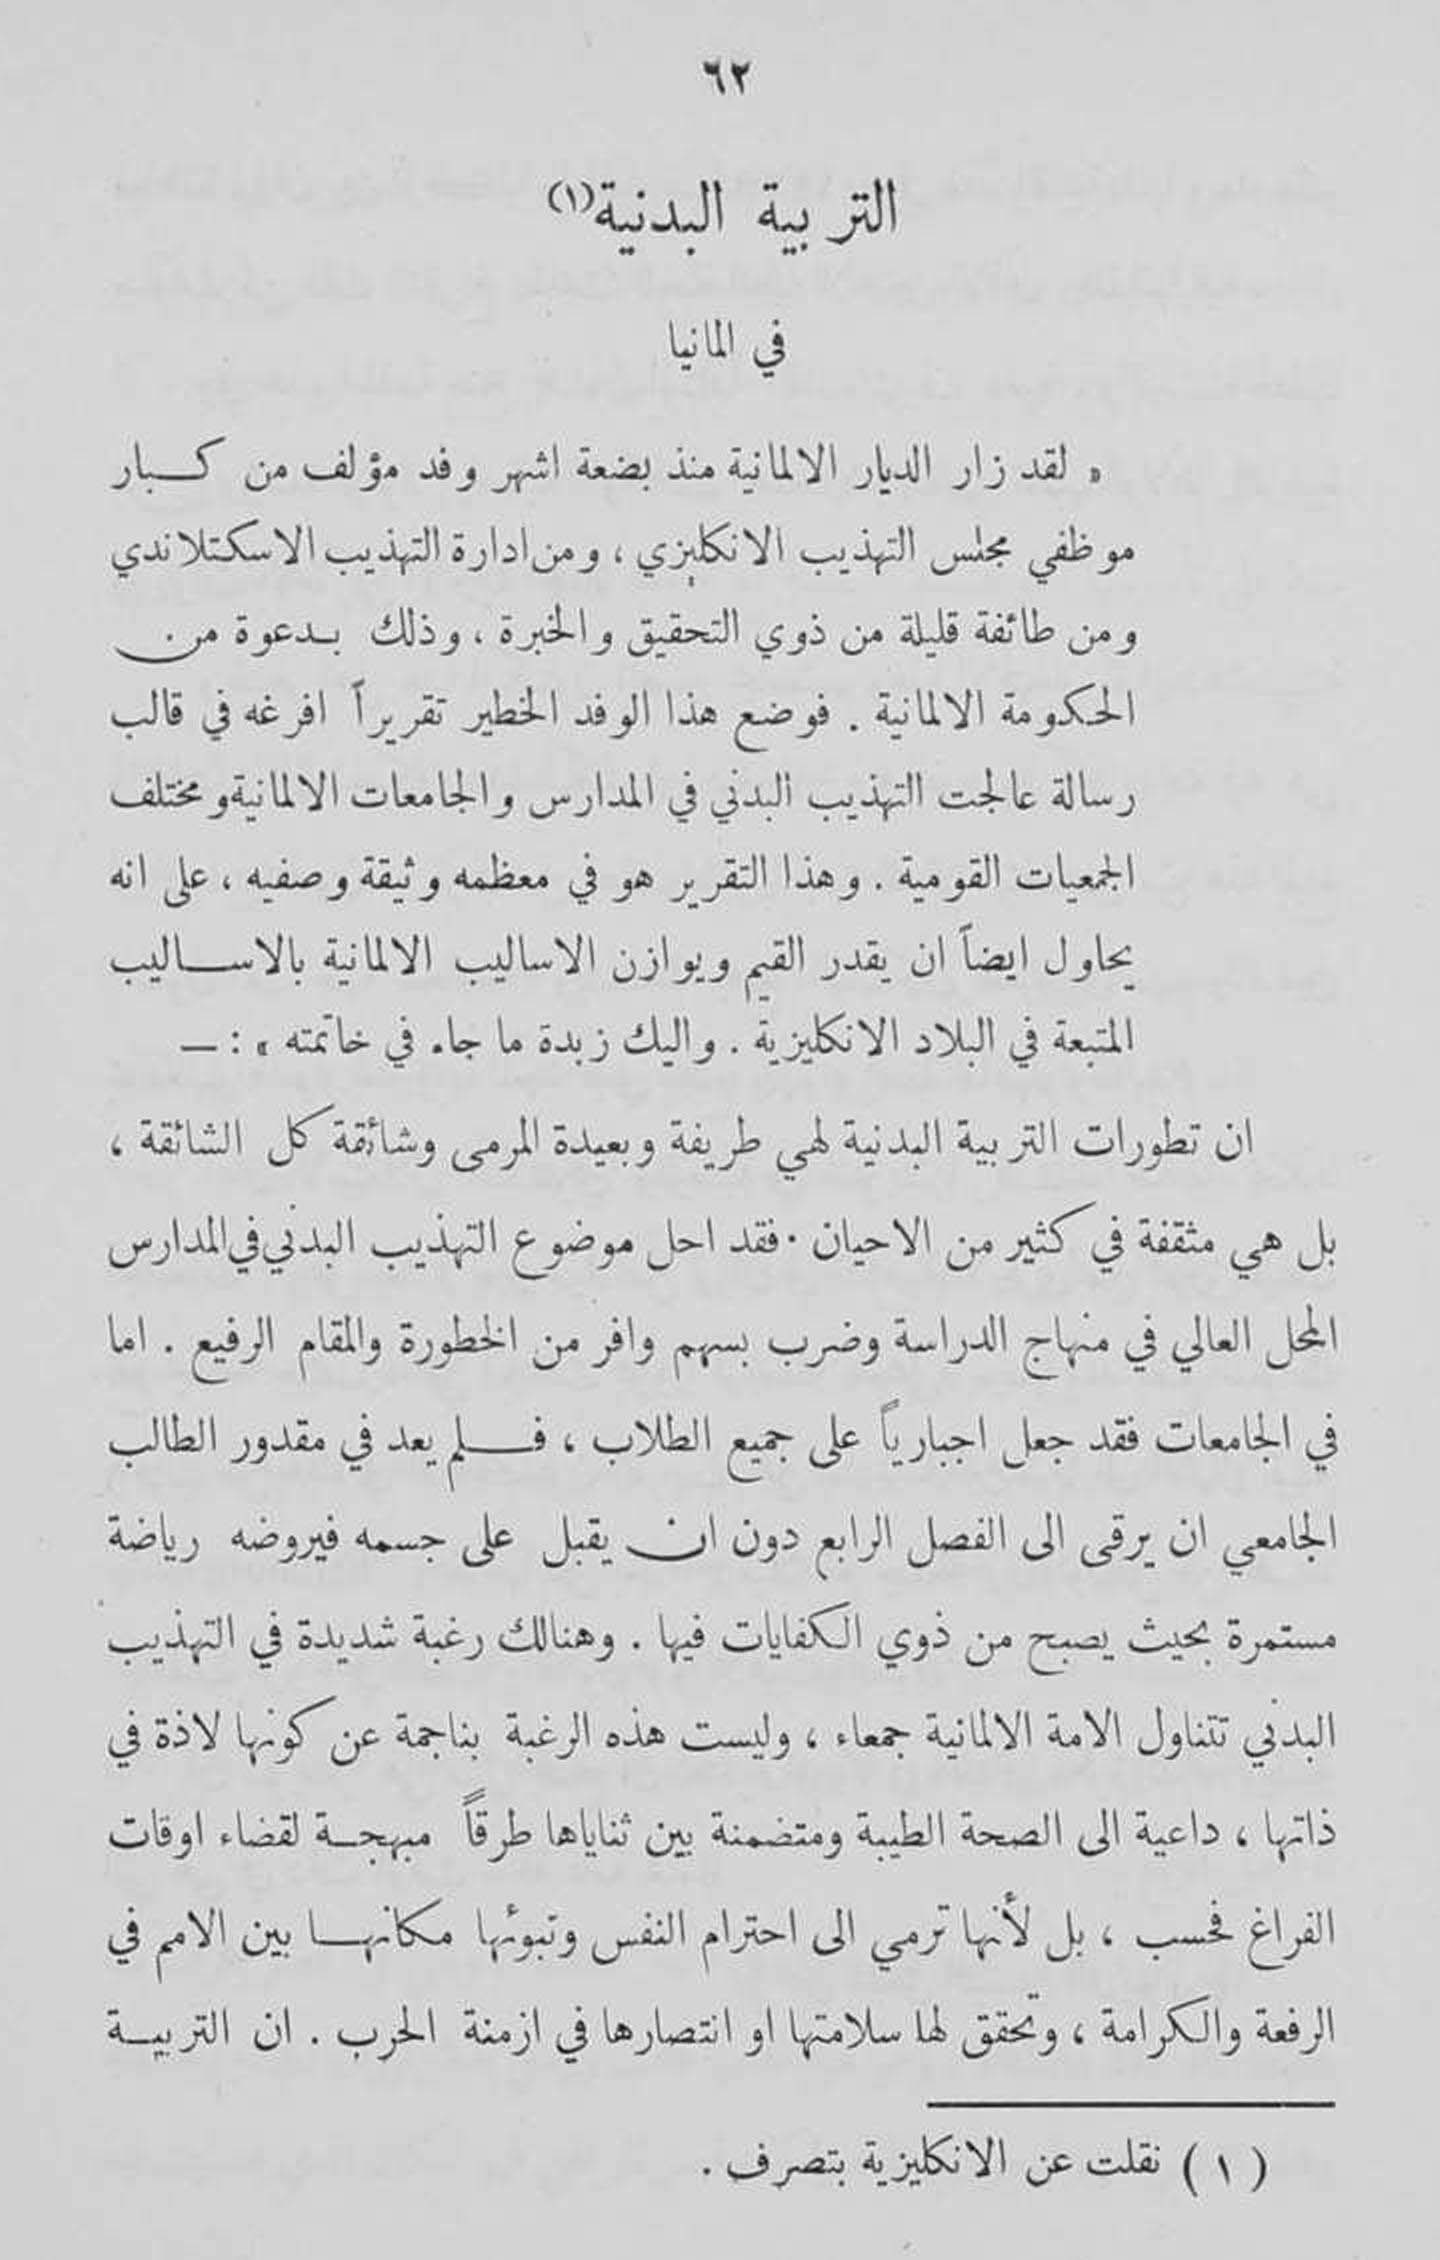 ٦٢
التربية البدنية(١)
في المانيا
« لقد زار الديار الالمانية منذ بضعة اشهر وفد مؤلف من كبار
موظفي مجلس التهذيب الانكليزي ، ومن ادارة التهذيب الاسكتلاندي
ومن طائفة قليلة من ذوي التحقيق والخبرة ، وذلك بدعوة من
الحكومة الالمانية . فوضع هذا الوفد الخطير تقريراً افرغه في قالب
رسالة عالجت التهذيب البدني في المدارس والجامعات الالمانية ومختلف
الجمعيات القومية . وهذا التقرير هو في معظمه وثيقة وصفيه ، على انه
يحاول ايضاً ان يقدر القيم ويوازن الاساليب الالمانية بالاساليب
المتبعة في البلاد الانكليزية . واليك زبدة ما جاء في خاتمته » : —
ان تطورات التربية البدنية لهي طريفة وبعيدة المرمى وشائقة كل الشائقة ،
بل هي مثقفة في كثير من الاحيان . فقد احل موضوع التهذيب البدني في المدارس
المحل العالي في منهاج الدراسة وضرب بسهم وافر من الخطورة والمقام الرفيع . اما
في الجامعات فقد جعل اجبارياً على جميع الطلاب ، فلم يعد في مقدور الطالب
الجامعي ان يرقى الى الفصل الرابع دون ان يقبل على جسمه فيروضه رياضة
مستمرة بحيث يصبح من ذوي الكفايات فيها . وهنالك رغبة شديدة في التهذيب
البدني تتناول الامة الالمانية جمعاء ، وليست هذه الرغبة بناجمة عن كونها لاذة في
ذاتها ، داعية الى الصحة الطيبة ومتضمنة بين ثناياها طرقاً مبهجة لقضاء اوقات
الفراغ فحسب ، بل لأنها ترمي الى احترام النفس وتبوئها مكانها بين الامم في
الرفعة والكرامة ، وتحقق لها سلامتها او انتصارها في ازمنة الحرب . ان التربية
( ١ ) نقلت عن الانكليزية بتصرف .